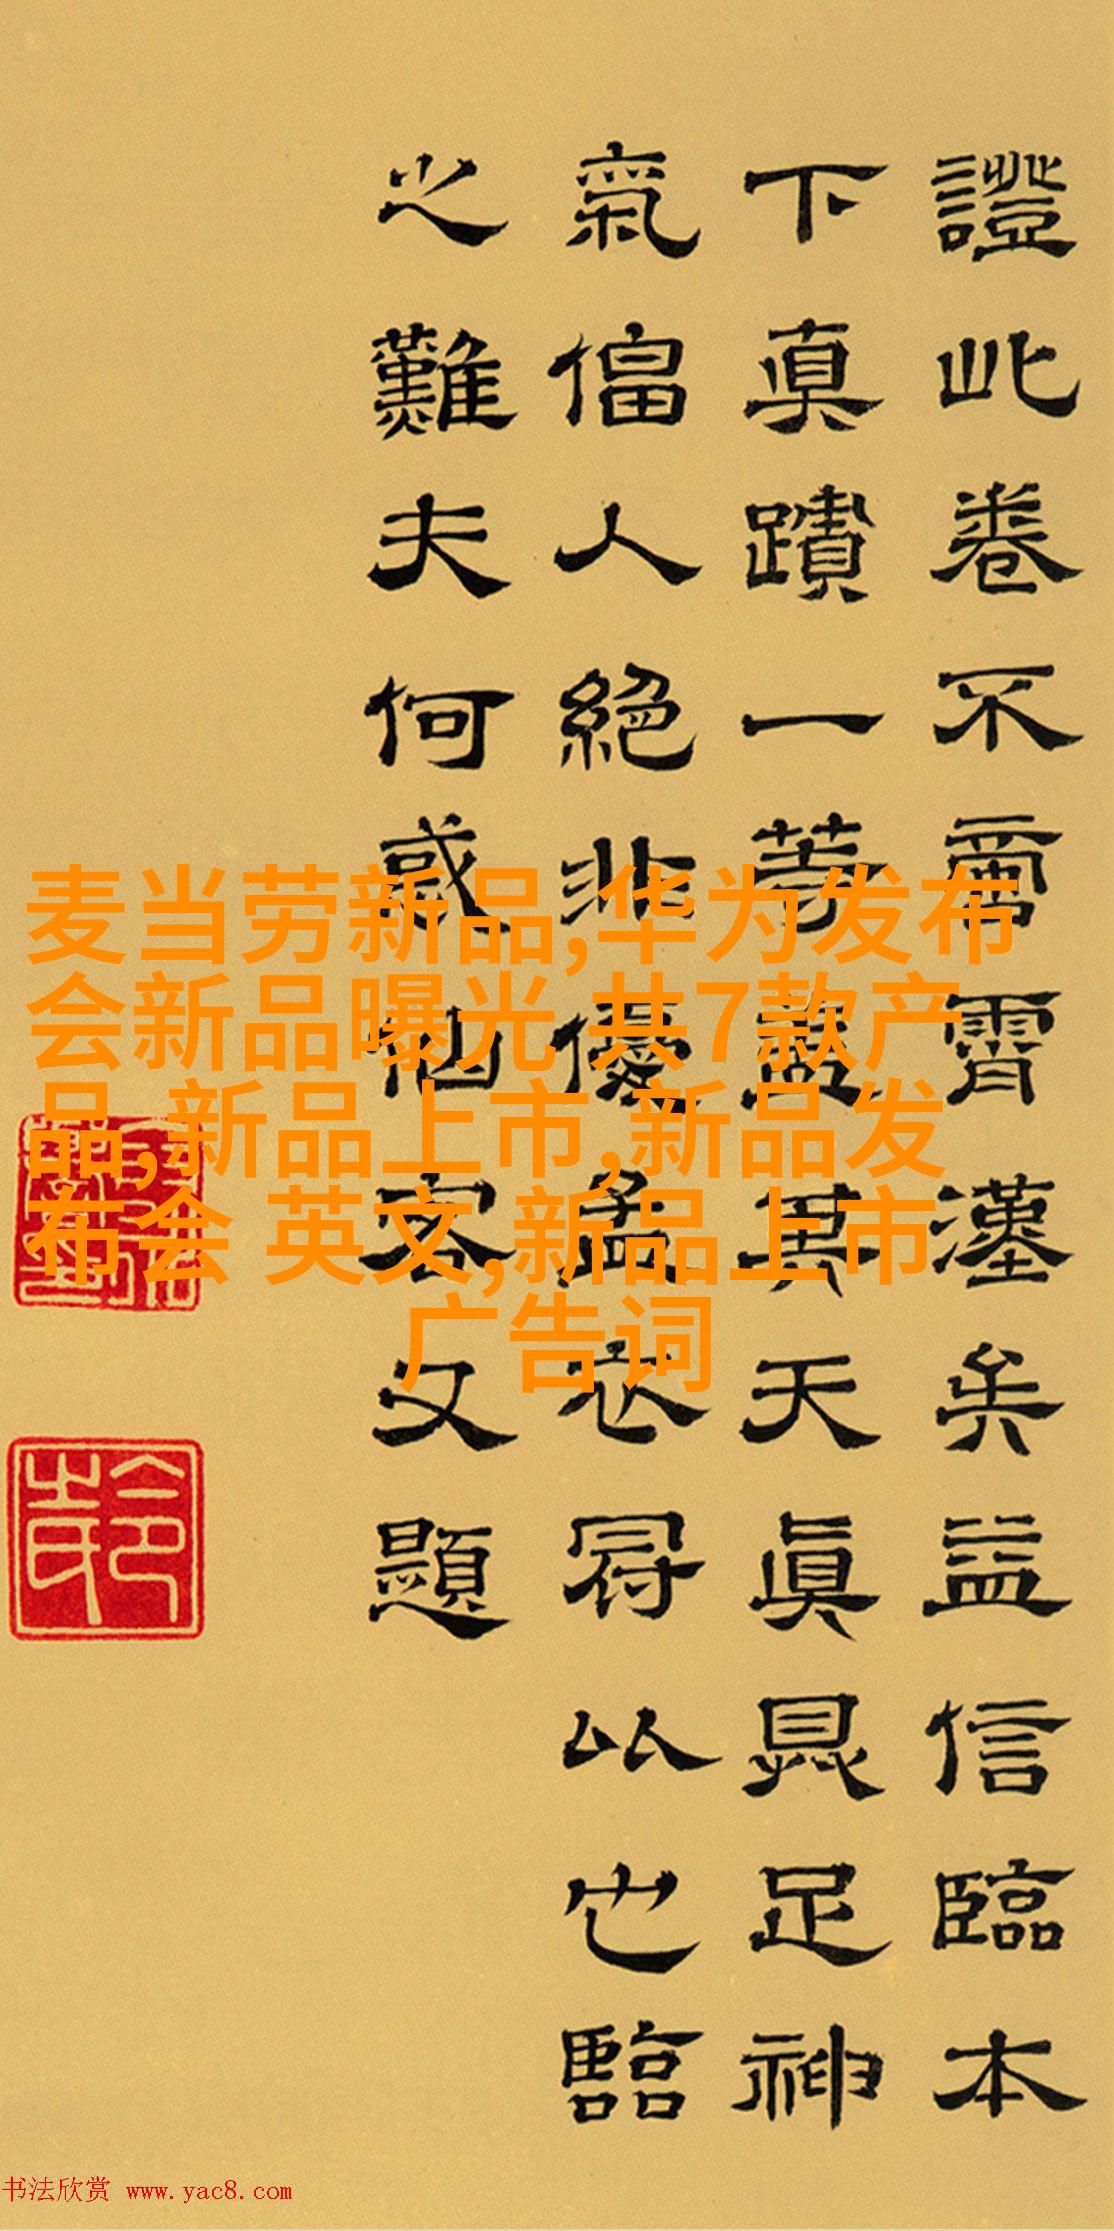 證此卷不啻霄漢矣益信臨本
下真蹟一等蓋其天眞具足神
氣偪人絕非優孟衣冠以也臨
之難夫何客又題
麦当劳新品,华为发布
会新品曝光 共7款产
品,新品上市,新品发
布会 英文,新品上市
广告词
书法欣赏 www.yac8.com